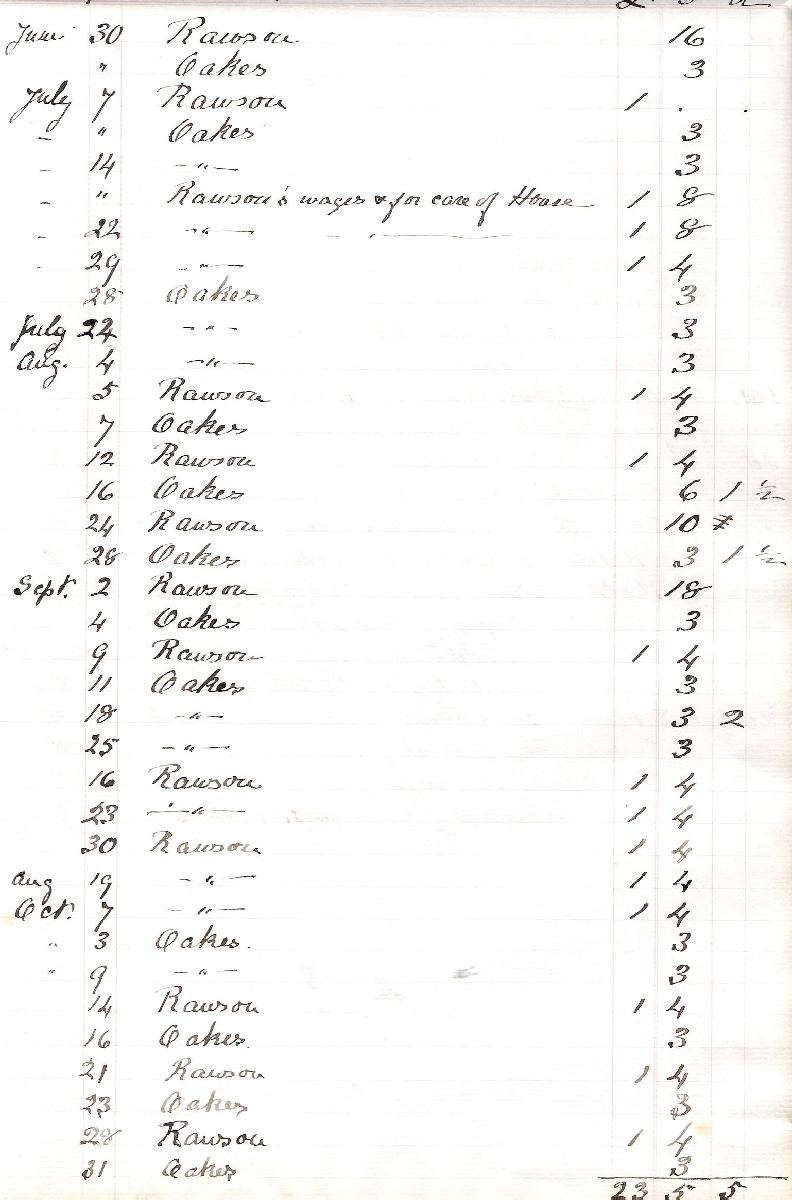 £ s d
June 30 Rawson 16
" Oakes 3
July 7 Rawson 1 . .
- " Oakes 3
- 14 -"- 3
- " Rawson's wages & for care of House 1 8
- 22 -"- 1 8
- 29 -"- 1 4
28 Oakes 3
July 22 -"- 3
Aug. 4 -"- 3
5 Rawson 1 4
7 Oakes 3
12 Rawson 1 4
16 Oakes 6 1 ½
24 Rawson 10
28 Oakes 3 1 ½
Sept. 2 Rawson 18
4 Oakes 3
9 Rawson 1 4
11 Oakes 3
18 -"- 3 2
25 -"- 3
16 Rawson 1 4
23 -"- 1 4
30 Rawson 1 4
Aug 19 -"- 1 4
Oct. 7 -"- 1 4
" 3 Oakes. 3
" 9 -"- 3
14 Rawson 1 4
16 Oakes. 3
21 Rawson 1 4
23 Oakes 3
28 Rawson 1 4
31 Oakes 3
23 5 5